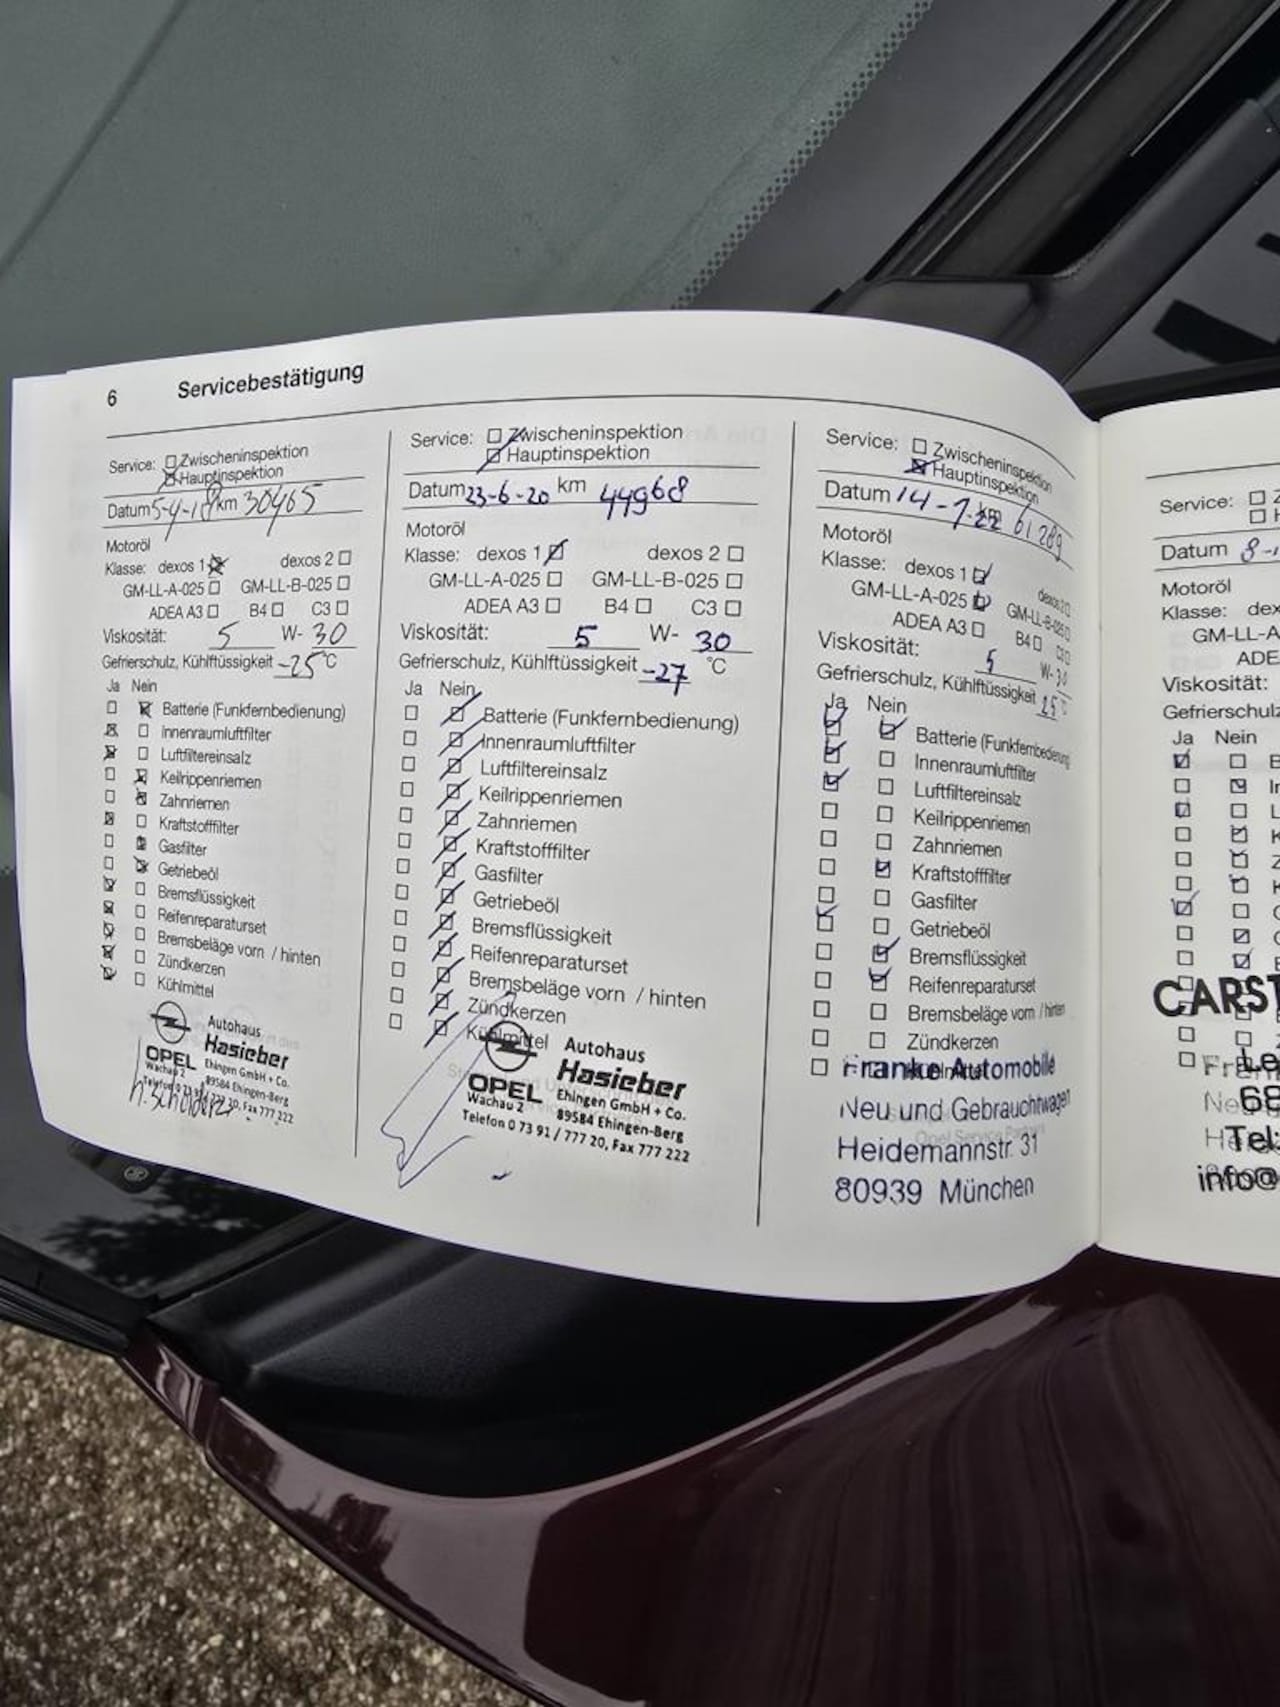 6 Servicebestätigung
Service: Zwischeninspektion
Hauptinspektion
Datum 5-4-18 km 30465
Motoröl
Klasse: dexos 1 dexos 2
GM-LL-A-025 GM-LL-B-025
ADEA A3 B4 C3
Viskosität: 5 W- 30
Gefrierschutz, Kühlflüssigkeit -25 °C
Ja Nein
Batterie (Funkfernbedienung)
Innenraumluftfilter
Luftfiltereinsalz
Keilrippenriemen
Zahnriemen
Kraftstofffilter
Gasfilter
Getriebeöl
Bremsflüssigkeit
Reifenreparaturset
Bremsbeläge vorn / hinten
Zündkerzen
Kühlmittel
Autohaus
Hasieber
OPEL Ehingen GmbH + Co.
Wachau 2 89584 Ehingen-Berg
Telefon 0 73 91 / 777 20, Fax 777 222
Service: Zwischeninspektion
Hauptinspektion
Datum 23-6-20 km 44968
Motoröl
Klasse: dexos 1 dexos 2
GM-LL-A-025 GM-LL-B-025
ADEA A3 B4 C3
Viskosität: 5 W- 30
Gefrierschutz, Kühlftüssigkeit -27 °C
Ja Nein
Batterie (Funkfernbedienung)
Innenraumluftfilter
Luftfiltereinsalz
Keilrippenriemen
Zahnriemen
Kraftstofffilter
Gasfilter
Getriebeöl
Bremsflüssigkeit
Reifenreparaturset
Bremsbeläge vorn / hinten
Zündkerzen
Kühlmittel
Autohaus
Hasieber
OPEL Ehingen GmbH + Co.
Wachau 2 89584 Ehingen-Berg
Telefon 0 73 91 / 777 20, Fax 777 222
Service: Zwischeninspektion
Hauptinspektion
Datum 14-7-22 km 61289
Motoröl
Klasse: dexos 1 dexos 2
GM-LL-A-025 GM-LL-B-025
ADEA A3 B4 C3
Viskosität: 5 W- 30
Gefrierschutz, Kühlftüssigkeit 25 °C
Ja Nein
Batterie (Funkfernbedienung)
Innenraumluftfilter
Luftfiltereinsalz
Keilrippenriemen
Zahnriemen
Kraftstofffilter
Gasfilter
Getriebeöl
Bremsflüssigkeit
Reifenreparaturset
Bremsbeläge vorn / hinten
Zündkerzen
Franke Automobile
Neu und Gebrauchtwagen
Heidemannstr. 31
80939 München
Service: Z
H
Datum 8-1
Motoröl
Klasse: dex
GM-LL-A
ADE
Viskosität:
Gefrierschutz
Ja Nein
CARST
Le
68
Tel:
info@